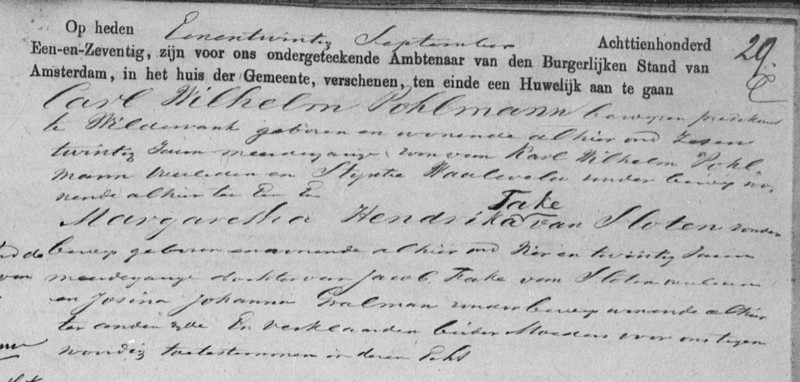 Op heden Eenentwintig September Achttienhonderd
29.
Een-en-Zeventig, zijn voor ons ondergeteekende Ambtenaar van den Burgerlijken Stand van
Amsterdam, in het huis der Gemeente, verschenen, ten einde een Huwelijk aan te gaan
Carl Wilhelm Pohlmann
te Wildervank geboren en wonende alhier oud zesen
twintig Jaren meerderjarige zoon van Karl Wilhelm Pohl-
mann overleden en Stijntje zonder beroep wo-
nende alhier ter Een En
Take
Margaretha Hendrika van Sloten zonder
beroep geboren en wonende alhier oud Vier en twintig Jaren
meerderjarige dochter van Jacob Take van Sloten
en Josina Johanna zonder beroep wonende alhier
ter andere zijde En verklaarden beider Moeders voor ons tegen
woordig toetestemmen in deren Echt